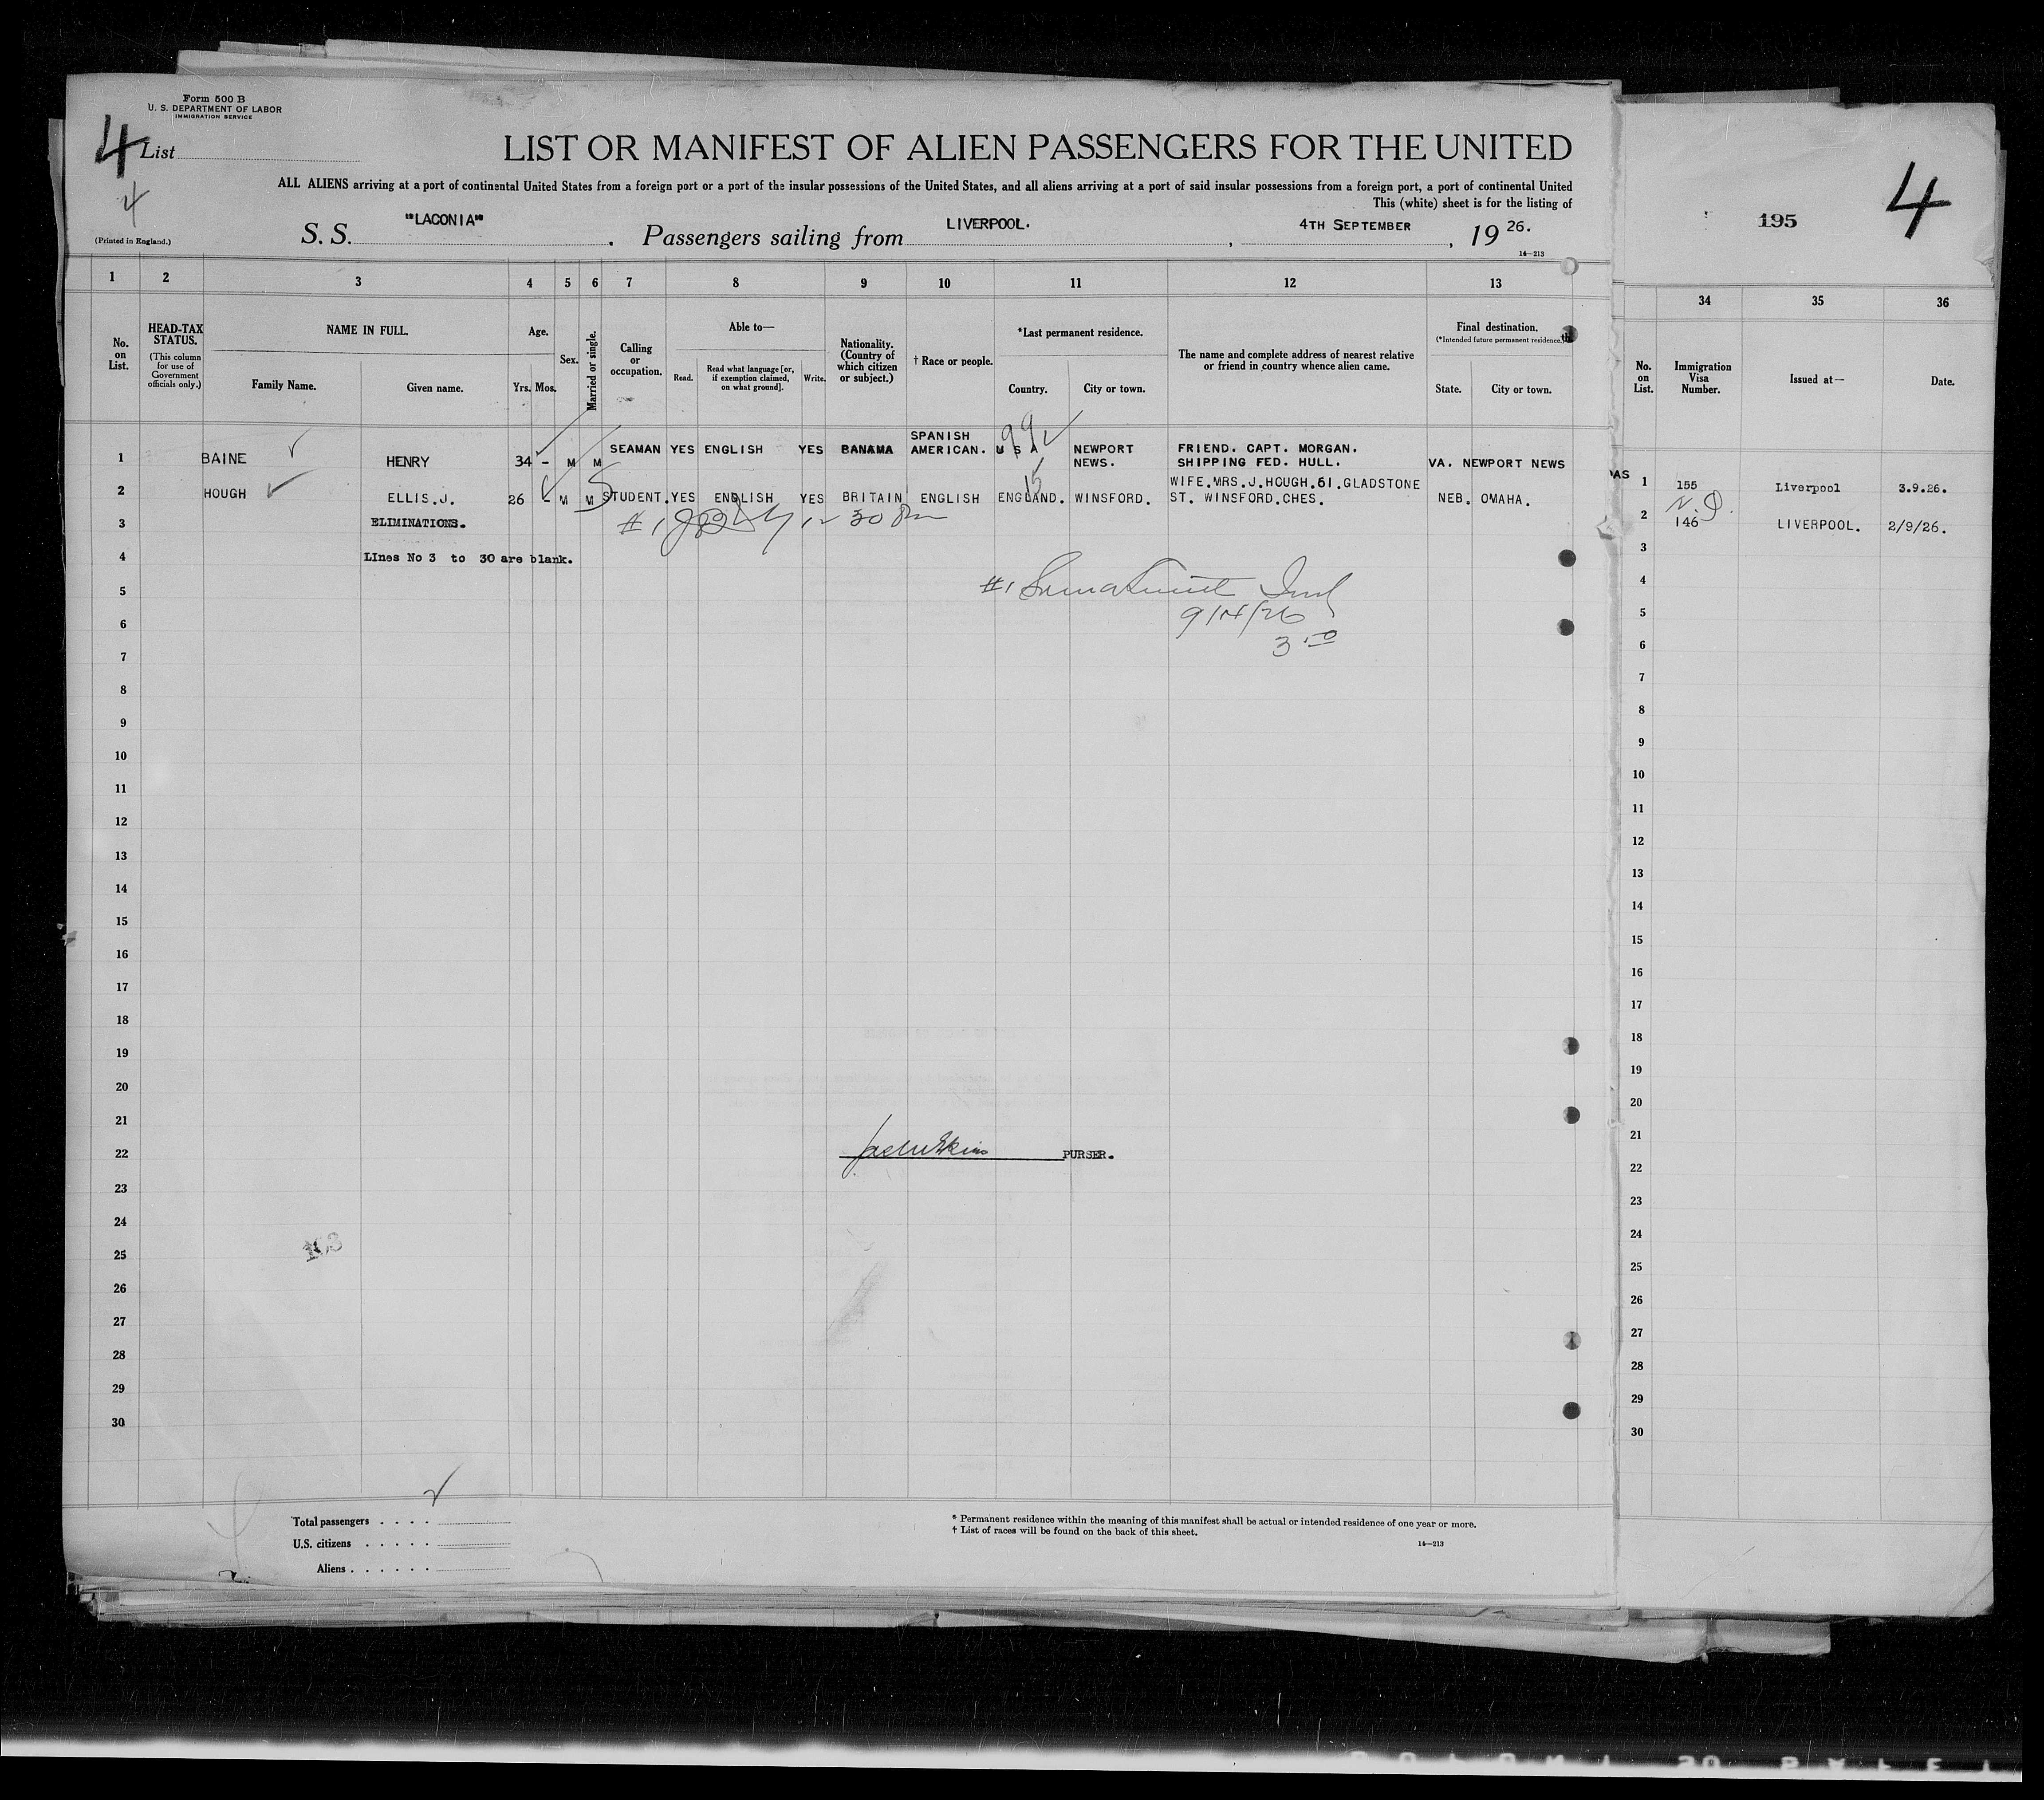 Form 500 B
U. S. DEPARTMENT OF LABOR
IMMIGRATION SERVICE
4 List
4
LIST OR MANIFEST OF ALIEN PASSENGERS FOR THE UNITED
ALL ALIENS arriving at a port of continental United States from a foreign port or a port of the insular possessions of the United States, and all aliens arriving at a port of said insular possessions from a foreign port, a port of continental United
This (white) sheet is for the listing of
(Printed in England.)
S. S. "LACONIA" . Passengers sailing from LIVERPOOL. , 4TH SEPTEMBER , 19 26.
14—213
195 4
1 2 3 4 5 6 7 8 9 10 11 12 13
34 35 36
No. on List.
HEAD-TAX STATUS.
(This column for use of Government officials only.)
NAME IN FULL.
Family Name. Given name.
Age.
Yrs. Mos.
Sex.
Married or single.
Calling or occupation.
Able to—
Read. Read what language [or, if exemption claimed, on what ground]. Write.
Nationality. (Country of which citizen or subject.)
† Race or people.
*Last permanent residence.
Country. City or town.
The name and complete address of nearest relative or friend in country whence alien came.
Final destination.
(*Intended future permanent residence.)
State. City or town.
No. on List.
Immigration Visa Number.
Issued at—
Date.
1 BAINE HENRY 34 - M M SEAMAN YES ENGLISH YES PANAMA SPANISH AMERICAN. U S A NEWPORT NEWS. FRIEND. CAPT. MORGAN. SHIPPING FED. HULL. VA. NEWPORT NEWS
99
1 155 Liverpool 3.9.26.
2 HOUGH ELLIS.J. 26 - M M S STUDENT. YES ENGLISH YES BRITAIN ENGLISH ENGLAND. WINSFORD. WIFE.MRS.J.HOUGH.61.GLADSTONE ST. WINSFORD.CHES. NEB. OMAHA.
15
2 146 LIVERPOOL. 2/9/26.
3 ELIMINATIONS.
4 Lines No 3 to 30 are blank.
#1
9/14/26
3
5
6
7
8
9
10
11
12
13
14
15
16
17
18
19
20
21
22 PURSER.
23
24
25
26
27
28
29
30
3
4
5
6
7
8
9
10
11
12
13
14
15
16
17
18
19
20
21
22
23
24
25
26
27
28
29
30
Total passengers . . . .
U.S. citizens . . . . .
Aliens . . . . . .
* Permanent residence within the meaning of this manifest shall be actual or intended residence of one year or more.
† List of races will be found on the back of this sheet.
14—213